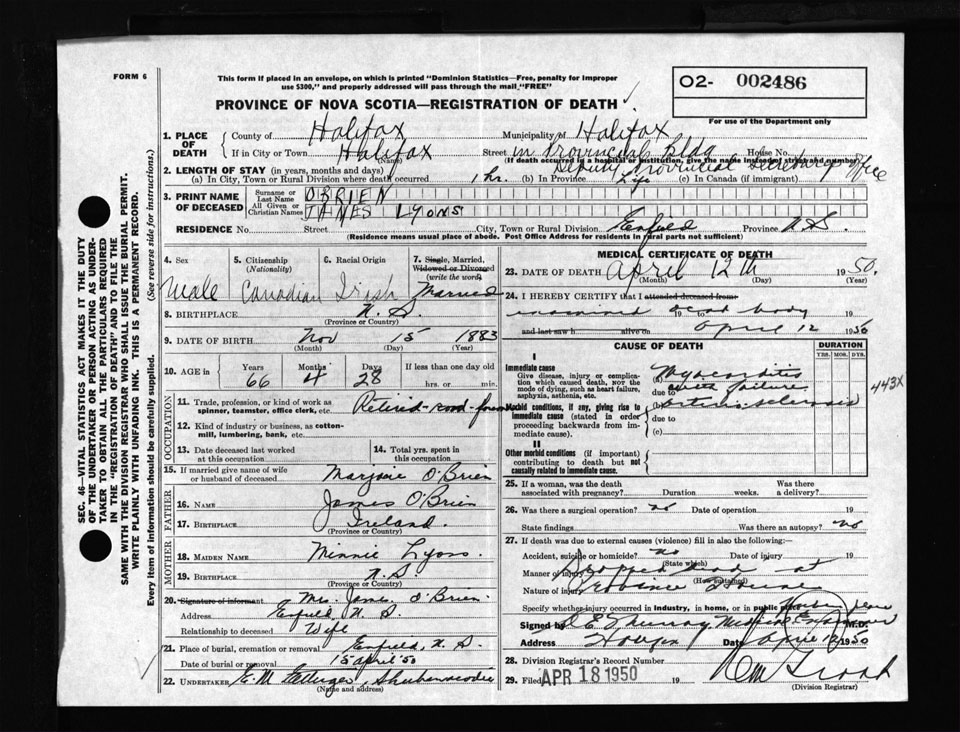 FORM 6
This form if placed in an envelope, on which is printed "Dominion Statistics—Free, penalty for improper
use $300," and properly addressed will pass through the mail "FREE"
O2- 002486
For use of the Department only
PROVINCE OF NOVA SCOTIA—REGISTRATION OF DEATH
1. PLACE OF DEATH
County of Halifax Municipality of Halifax
If in City or Town Halifax (Name) Street in Provincial Bldg House No.
(If death occurred in a hospital or institution, give the name instead of street and number)
Deputy Provincial Secretary Office
2. LENGTH OF STAY (in years, months and days)
(a) In City, Town or Rural Division where death occurred 1 hr. (b) In Province Life (c) In Canada (if immigrant)
3. PRINT NAME OF DECEASED
Surname or Last Name O'BRIEN
All Given or Christian Names JAMES LYONS
RESIDENCE No. Street City, Town or Rural Division Enfield Province N.S.
(Residence means usual place of abode. Post Office Address for residents in rural parts not sufficient)
4. Sex Male
5. Citizenship (Nationality) Canadian
6. Racial Origin Irish
7. Single, Married, Widowed or Divorced (write the word) Married
8. BIRTHPLACE N.S.
(Province or Country)
9. DATE OF BIRTH Nov 15 1883
(Month) (Day) (Year)
10. AGE in Years 66 Months 4 Days 28 If less than one day hrs. or min.
OCCUPATION
11. Trade, profession, or kind of work as spinner, teamster, office clerk, etc. Retired road
12. Kind of industry or business, as cotton-mill, lumbering, bank, etc.
13. Date deceased last worked at this occupation
14. Total yrs. spent in this occupation
15. If married give name of wife or husband of deceased Marjorie O'Brien
FATHER
16. Name James O'Brien
17. Birthplace Ireland.
(Province or Country)
MOTHER
18. Maiden Name Minnie Lyons.
19. Birthplace N.S.
(Province or Country)
20. Signature of informant Mrs. James O'Brien
Address Enfield N.S.
Relationship to deceased Wife
21. Place of burial, cremation or removal Enfield, N.S.
Date of burial or removal 15 April '50
22. Undertaker E.M. Ettinger, Shubenacadie
(Name and address)
MEDICAL CERTIFICATE OF DEATH
23. DATE OF DEATH April 12th 1950.
(Month) (Day) (Year)
24. I HEREBY CERTIFY that I attended deceased from
examined dead body 19 to
and last saw h alive on April 12 1950
CAUSE OF DEATH
DURATION
YRS. MOS. DYS.
I
Immediate cause
Give disease, injury or complication which caused death, NOT the mode of dying, such as heart failure, asphyxia, asthenia, etc.
(a) Myocarditis
failure
due to
Morbid conditions, if any, giving rise to immediate cause (stated in order proceeding backwards from immediate cause).
Arterio-sclerosis
due to
(c)
443X
II
Other morbid conditions (if important) contributing to death but not causally related to immediate cause.
25. If a woman, was the death associated with pregnancy? Duration weeks. Was there a delivery?
26. Was there a surgical operation? no Date of operation 19
State findings Was there an autopsy? no
27. If death was due to external causes (violence) fill in also the following:—
Accident, suicide or homicide? no Date of injury 19
(State which)
Manner of injury Dropped dead at
(How sustained)
Nature of injury Province House
Specify whether injury occurred in industry, in home, or in public place
Signed by Medical Examiner M.D.
Address Date April 12 1950
28. Division Registrar's Record Number
29. Filed APR 18 1950 19
(Division Registrar)
SEC. 46—VITAL STATISTICS ACT MAKES IT THE DUTY
OF THE UNDERTAKER OR PERSON ACTING AS UNDERTAKER TO OBTAIN ALL THE PARTICULARS REQUIRED
IN THE "REGISTRATION OF DEATH" AND TO FILE THE
SAME WITH THE DIVISION REGISTRAR WHO SHALL ISSUE THE BURIAL PERMIT.
WRITE PLAINLY WITH UNFADING INK. THIS IS A PERMANENT RECORD.
Every item of information should be carefully supplied. (See reverse side for instructions.)